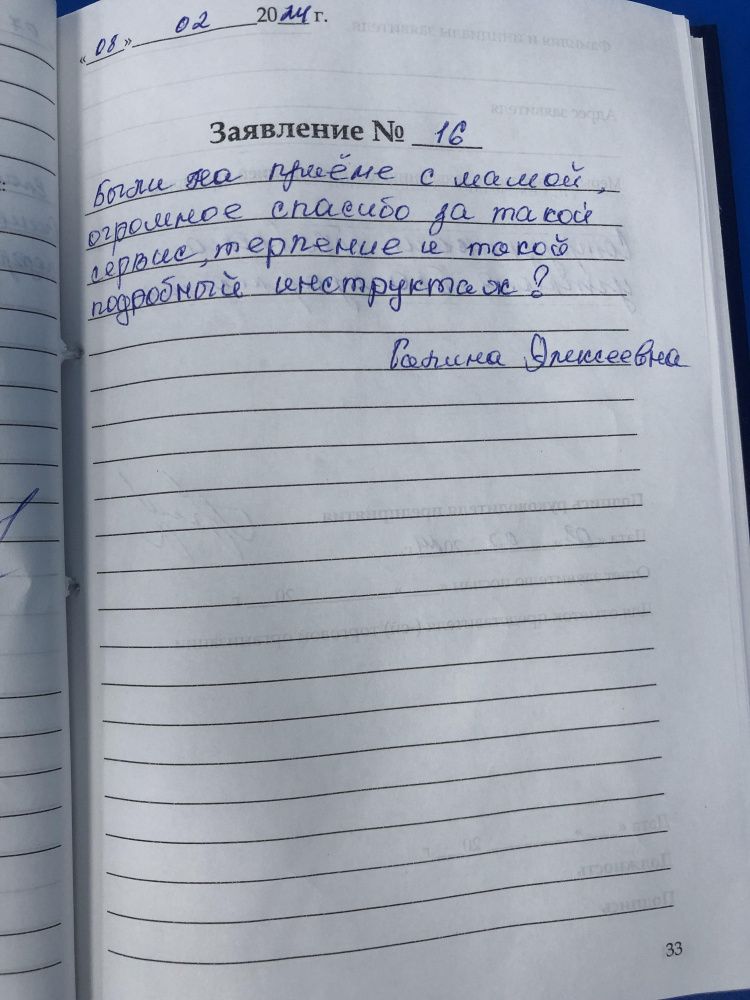 «08» 02 2024 г.
Заявление № 16
Были на приёме с мамой,
огромное спасибо за такой
сервис, терпение и такой
подробный инструктаж?
Галина Алексеевна
33